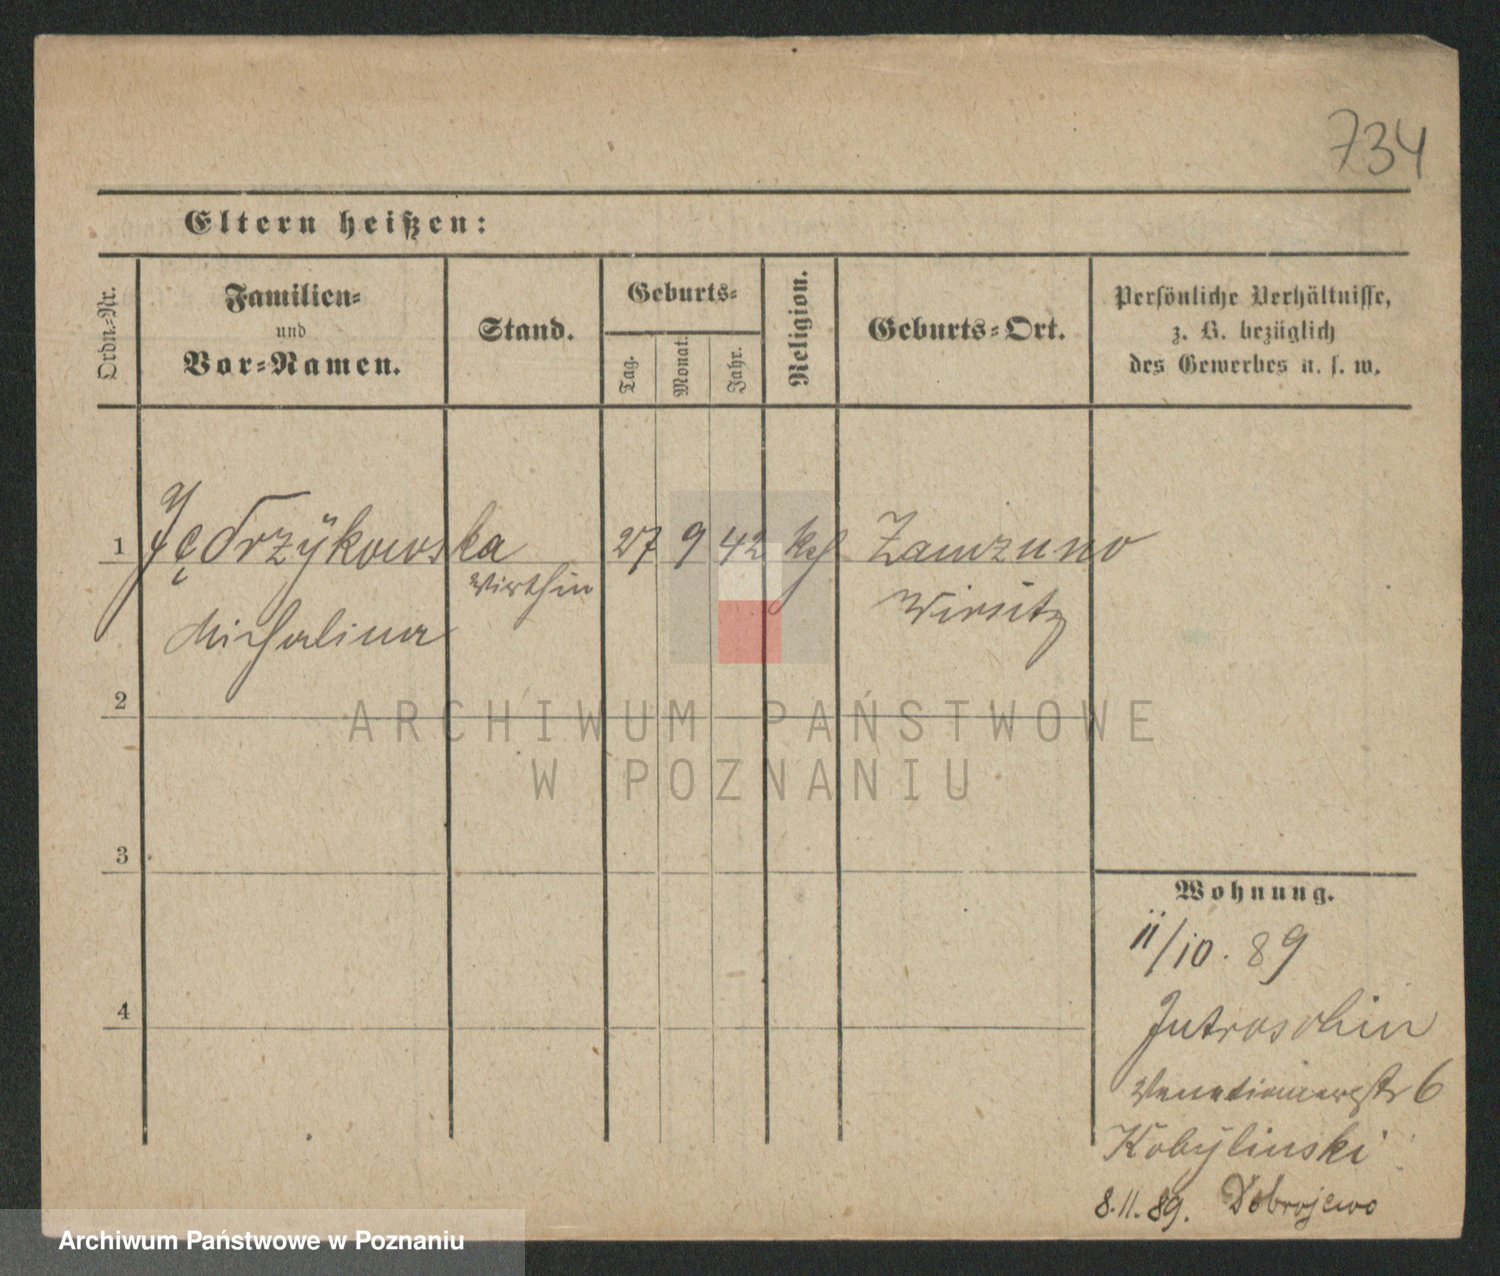 734
Eltern heißen:
Ordn.-Nr.
Familien-
und
Vor-Namen.
Stand.
Geburts-
Tag.
Monat.
Jahr.
Religion.
Geburts-Ort.
Persönliche Verhältnisse,
z. B. bezüglich
des Gewerbes u. s. w.
1 Jędrzykowska 27 9 42 kth Zamzuno
Wirthin
Michalina
Wirsitz
2
ARCHIWUM PAŃSTWOWE
W POZNANIU
3
Wohnung.
11/10. 89
4
Jutroschin
Venetianerstr 6
Kobylinski
8.11.89. Dobrojewo
Archiwum Państwowe w Poznaniu